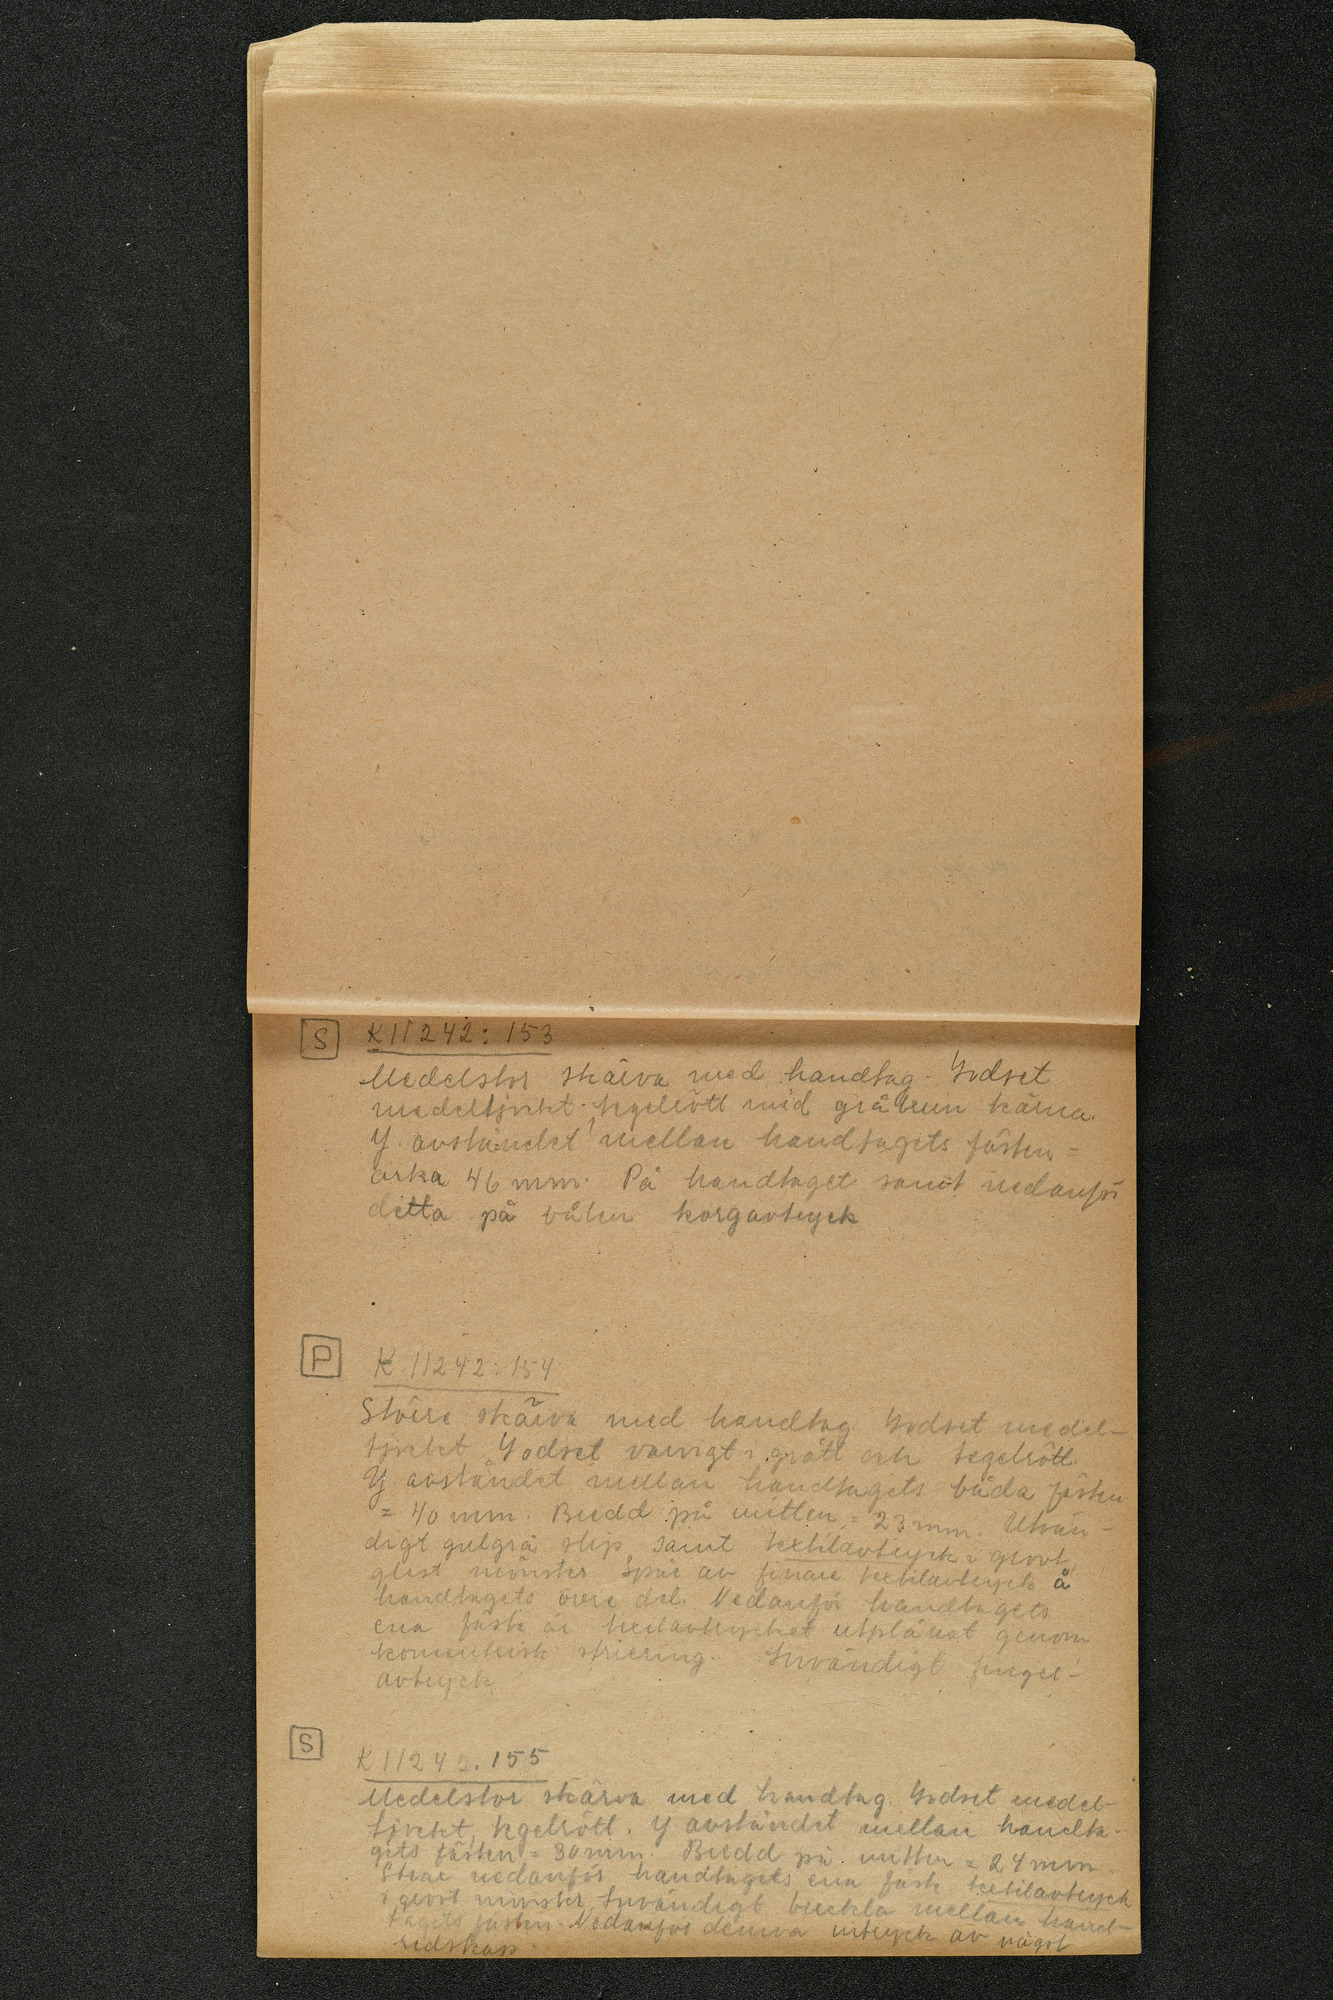 S K11242:153
Medelstor skärva med handtag. Godset
medeltjockt, tegelrött med gråbrun kärna.
Y. avståndet mellan handtagets fästen =
cirka 46 mm. På handtaget samt nedanför
detta på bålen korgavtryck
P K 11242:154
Större skärva med handtag. Godset medel-
tjockt. Godset varvigt i grått och tegelrött.
Y. avståndet mellan handtagets båda fästen
= 40 mm. Bredd på mitten = 23 mm. Utvän-
digt gulgrå slip samt textilavtryck i grovt,
glest mönster. Spår av finare textilavtryck å
handtagets övre del. Nedanför handtagets
ena fäste är textilavtrycket utplånat genom
koncentrisk striering. Invändigt finger-
avtryck
S K11242:155
Medelstor skärva med handtag. Godset medel-
tjockt, tegelrött. Y avståndet mellan handta-
gets fästen = 30 mm. Bredd på mitten = 24 mm.
Strax nedanför handtagets ena fäste textilavtryck
i grovt mönster. Invändigt buckla mellan hand-
tagets fästen. Nedanför denna intryck av något
redskap.